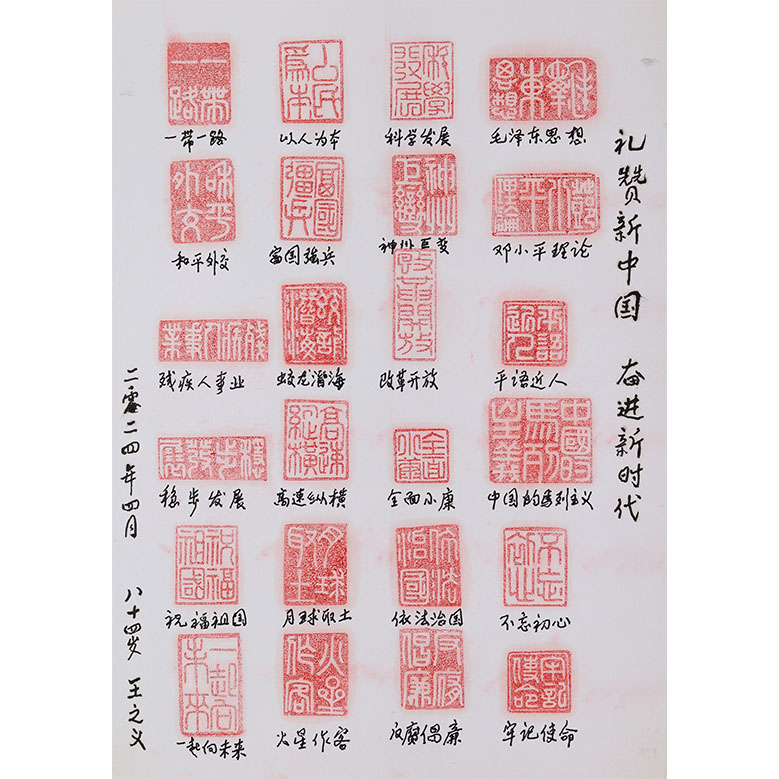 礼赞新中国 奋进新时代
毛泽东思想
科学发展
以人为本
一带一路
邓小平理论
神州巨变
富国强兵
和平外交
平语近人
改革开放
蛟龙潜海
残疾人事业
中国的马列主义
全面小康
高速纵横
稳步发展
不忘初心
依法治国
月球取土
祝福祖国
牢记使命
反腐倡廉
火星作客
一起向未来
二零二四年四月 八十四岁 王之义